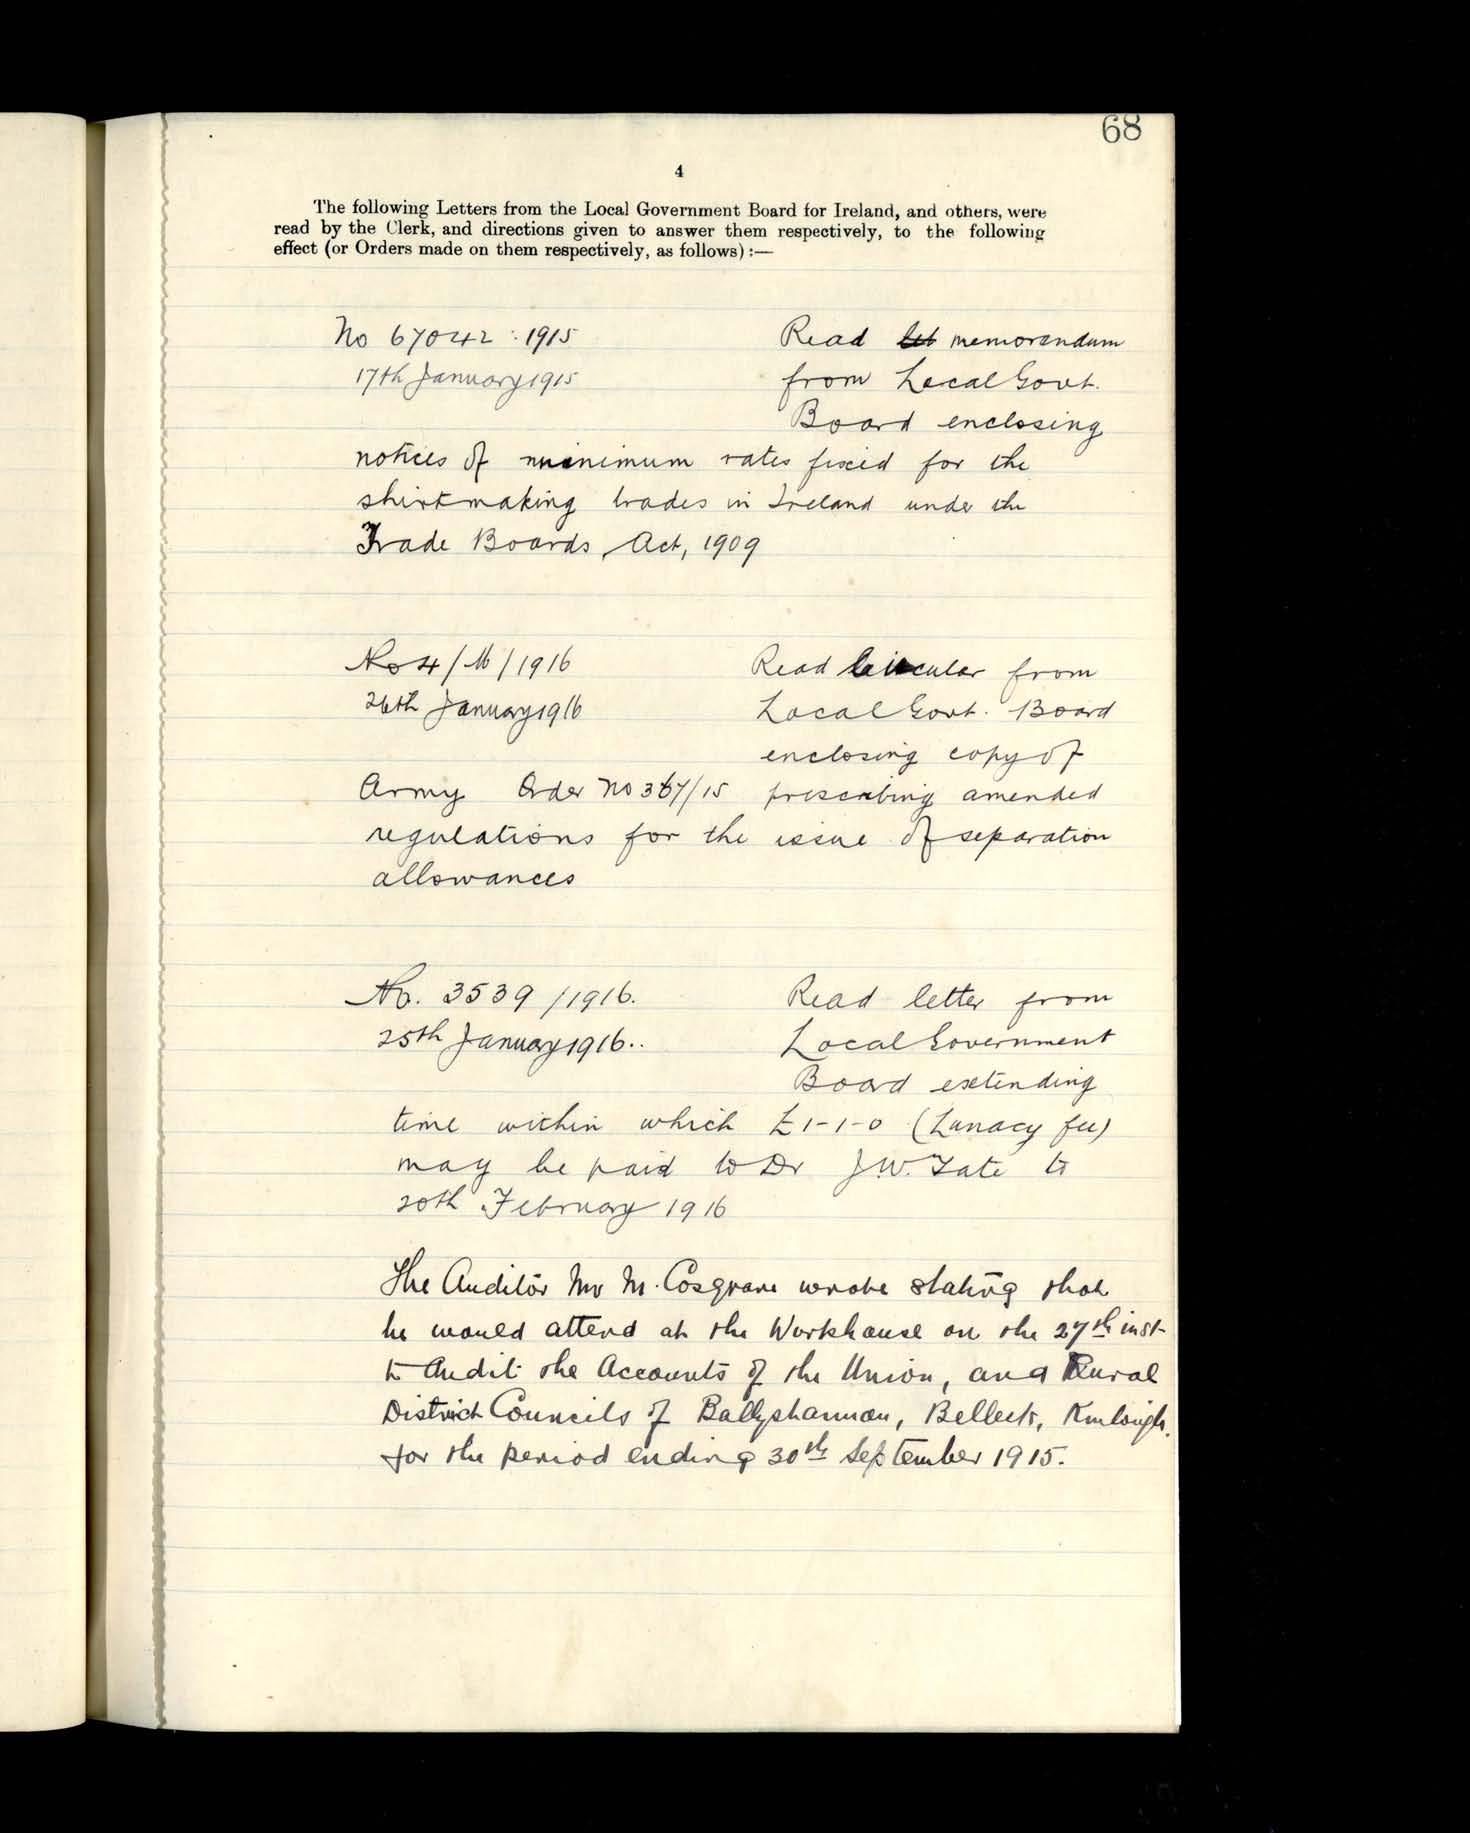 68
4
The following Letters from the Local Government Board for Ireland, and others, were
read by the Clerk, and directions given to answer them respectively, to the following
effect (or Orders made on them respectively, as follows) :—
No 67042 : 1915
17th January 1915
Read let memorandum
from Local Govt.
Board enclosing
notices of minimum rates fixed for the
shirtmaking trades in Ireland under the
Trade Boards Act, 1909
No 4/M/1916
26th January 1916
Read Circular from
Local Govt. Board
enclosing copy of
Army Order No 367/15 prescribing amended
regulations for the issue of separation
allowances
No. 3539/1916.
25th January 1916..
Read letter from
Local Government
Board extending
time within which £1-1-0 (Lunacy fee)
may be paid to Dr J.W. Tate to
20th February 1916
The Auditor Mr M. Cosgrave wrote stating that
he would attend at the Workhouse on the 27th inst
to Audit the Accounts of the Union, and Rural
District Councils of Ballyshannon, Belleek, Kinlough.
for the period ending 30th September 1915.